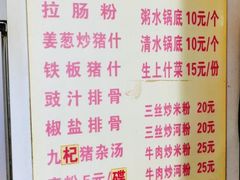 拉肠粉
姜葱炒猪什
铁板猪什
豉汁排骨
椒盐排骨
九杞猪杂汤
5元/碟
粥水锅底10元/个
清水锅底10元/个
生上什菜15元/份
三丝炒米粉 20元
三丝炒河粉 20元
牛肉炒米粉 25元
牛肉炒河粉 25元